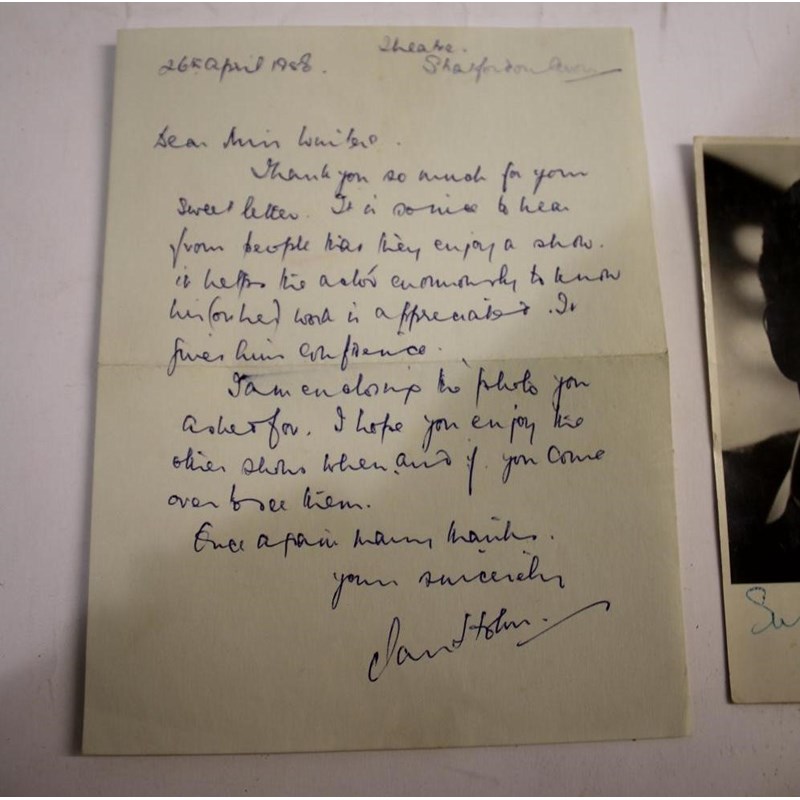 Theatre.
26th April 1958. Stratford on Avon
Dear Miss
Thank you so much for your
sweet letter. It is so nice to hear
from people that they enjoy a show.
it helps the actor enormously to know
his (or her) work is appreciated. It
gives him confidence.
I am enclosing the photo you
asked for. I hope you enjoy the
other shows when and if you come
over to see them.
Once again many thanks.
yours sincerely
Ian Holm.